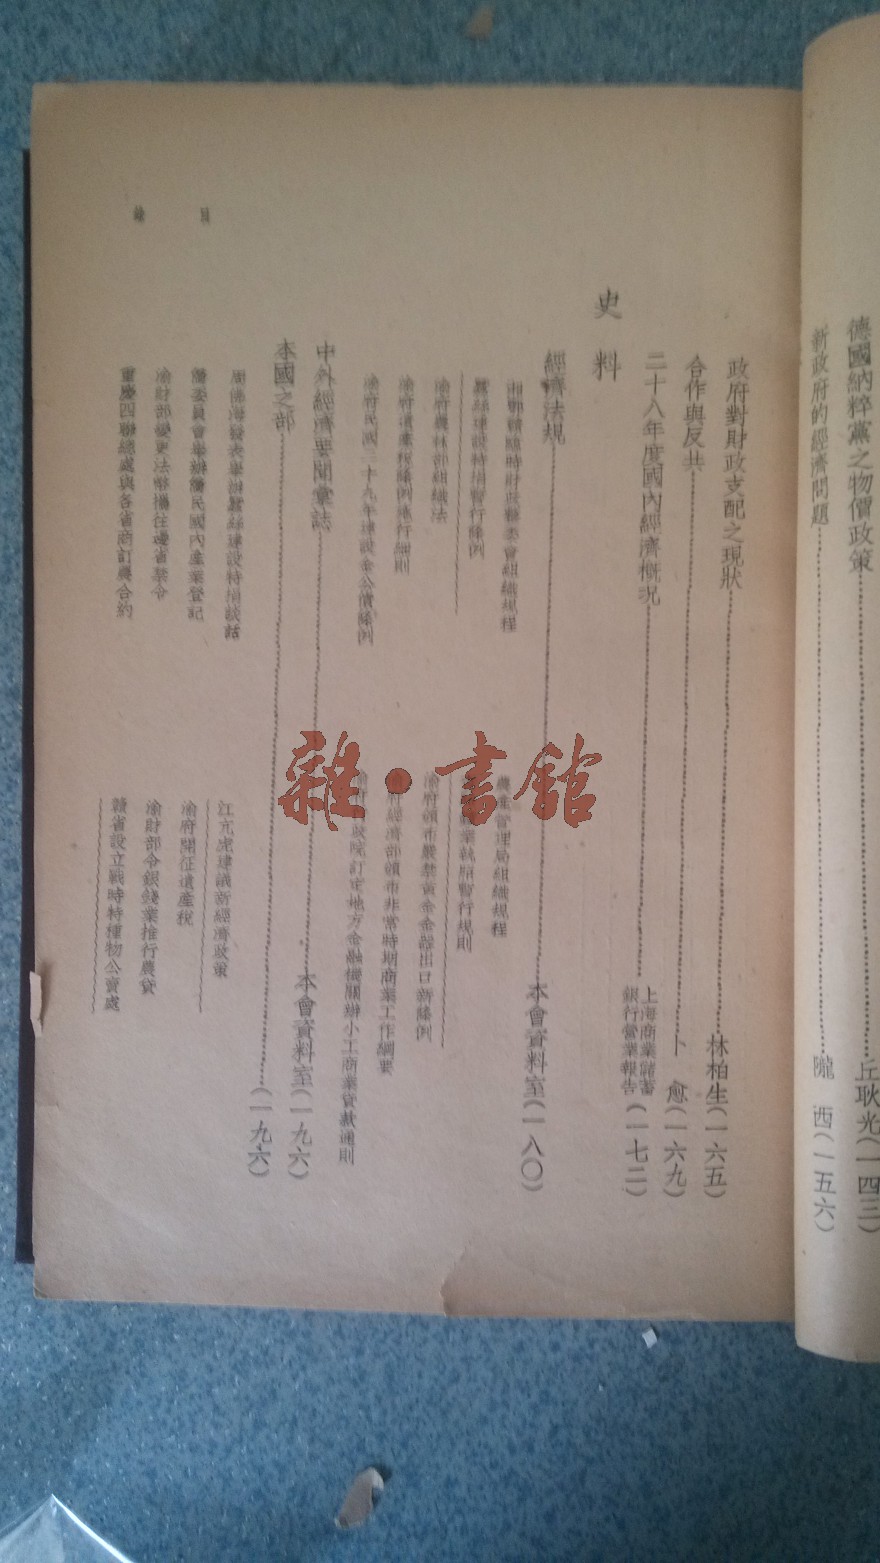 德國納粹黨之物價政策……丘耿光(一四三)
新政府的經濟問題……隴 西(一五六)
政府對財政支配之現狀……林柏生(一六五)
合作與反共……卜 愈(一六九)
二十八年度國內經濟概況……上海商業儲蓄銀行營業報告(一七二)
史 料
經濟法規……本會資料室(一八〇)
湘鄂贛臨時財政整委會組織規程
農業管理局組織規程
蠶絲建設特捐暫行條例
業執照暫行規則
渝府農林部組織法
渝府頒布嚴禁黃金金器出口新條例
渝府遺產稅條例施行細則
府經濟部頒布非常時期商業工作綱要
渝府民國二十九年建設金公債條例
渝 政院訂定地方金融機關辦小工商業貸款通則
中外經濟要聞彙誌……本會資料室(一九六)
本國之部……(一九六)
周佛海發表舉辦蠶絲建設特捐談話
江亢虎建議新經濟政策
僑委員會舉辦僑民國內產業登記
渝府開征遺產稅
渝財部變更法幣攜往邊省禁令
渝財部令銀錢業推行農貸
重慶四聯總處與各省商訂農合約
贛省設立戰時特種物公賣處
目
錄
雜·書館